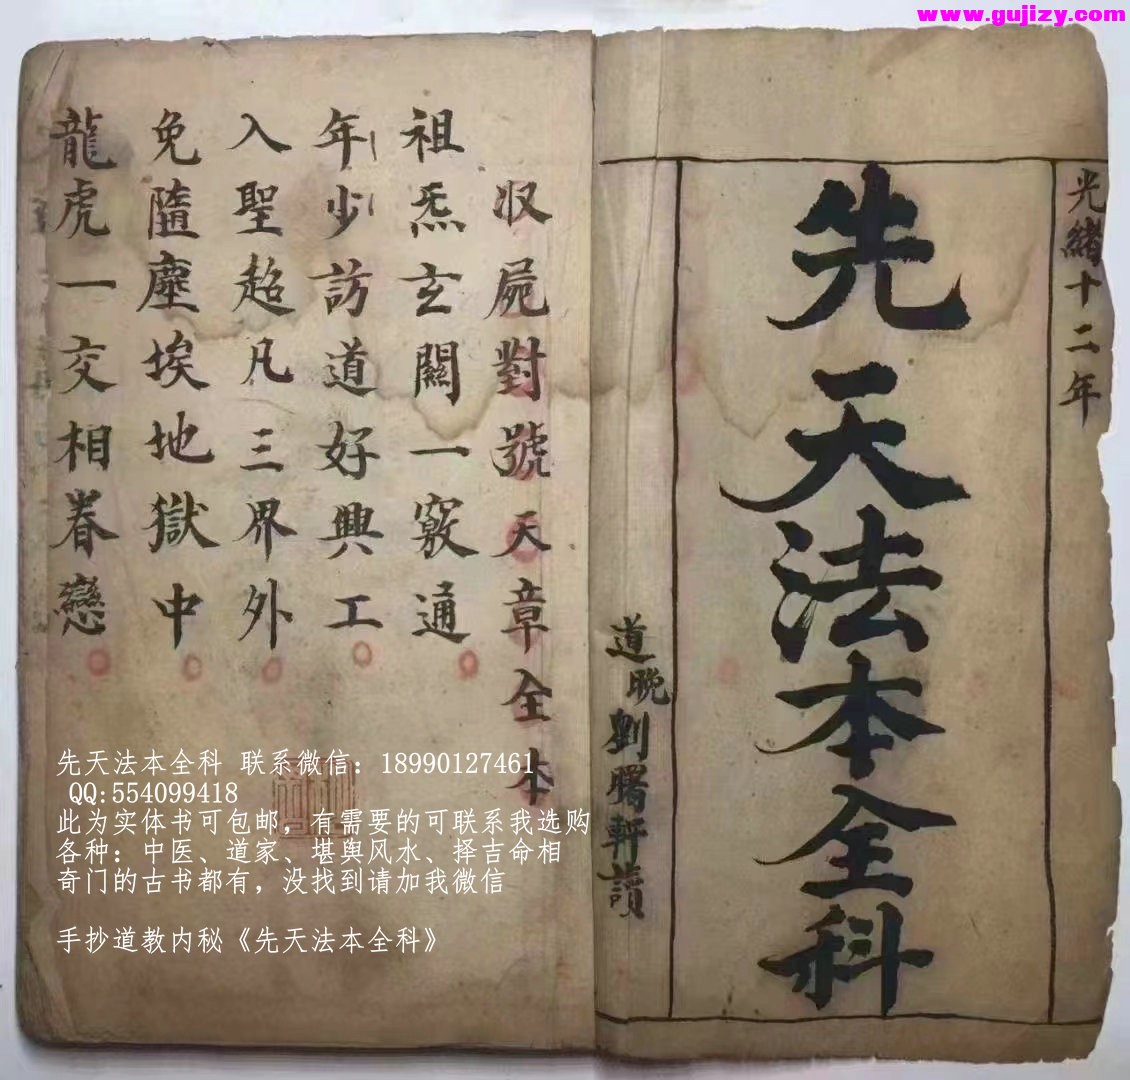 www.gujizy.com
光緒十二年
先天法本全科
道晚劉曙軒讀
収屍對號天章全本
祖炁玄關一竅通
年少訪道好興工
入聖超凡三界外
免隨塵埃地獄中
龍虎一交相眷戀
先天法本全科 联系微信：18990127461
QQ:554099418
此为实体书可包邮，有需要的可联系我选购
各种：中医、道家、堪舆风水、择吉命相
奇门的古书都有，没找到请加我微信
手抄道教内秘《先天法本全科》